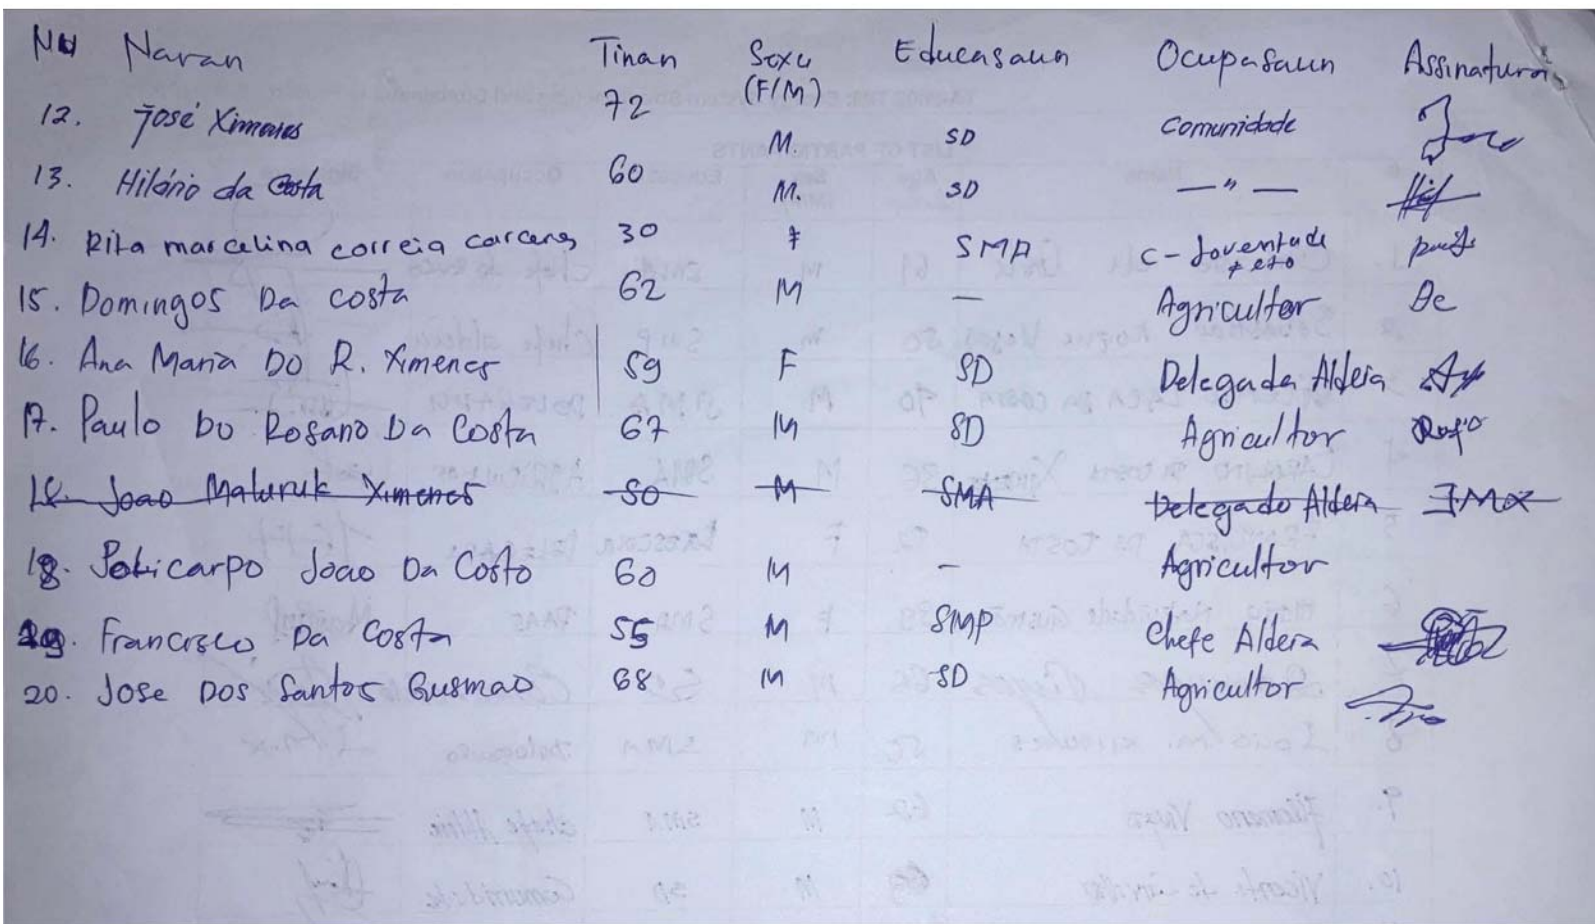 No Naran Tinan Sexu (F/M) Educasaun Ocupasaun Assinatura
12. José Ximenes 72 M SD Comunidade
13. Hilário da Costa 60 M. SD — " —
14. Rita marcelina correia 30 F SMA C- Joventude
15. Domingos Da costa 62 M — Agricultor Dc
16. Ana Maria DO R. Ximenes 59 F SD Delegada Aldeia
17. Paulo Do Rosario Da Costa 67 M SD Agricultor
18. Joao Maluruk Ximenes 50 M SMA Delegado Aldeia JMX
18. Policarpo Joao Da Costo 60 M - Agricultor
19. Francisco Da Costa 55 M SMP Chefe Aldeia
20. Jose Dos Santos Gusmao 68 M SD Agricultor